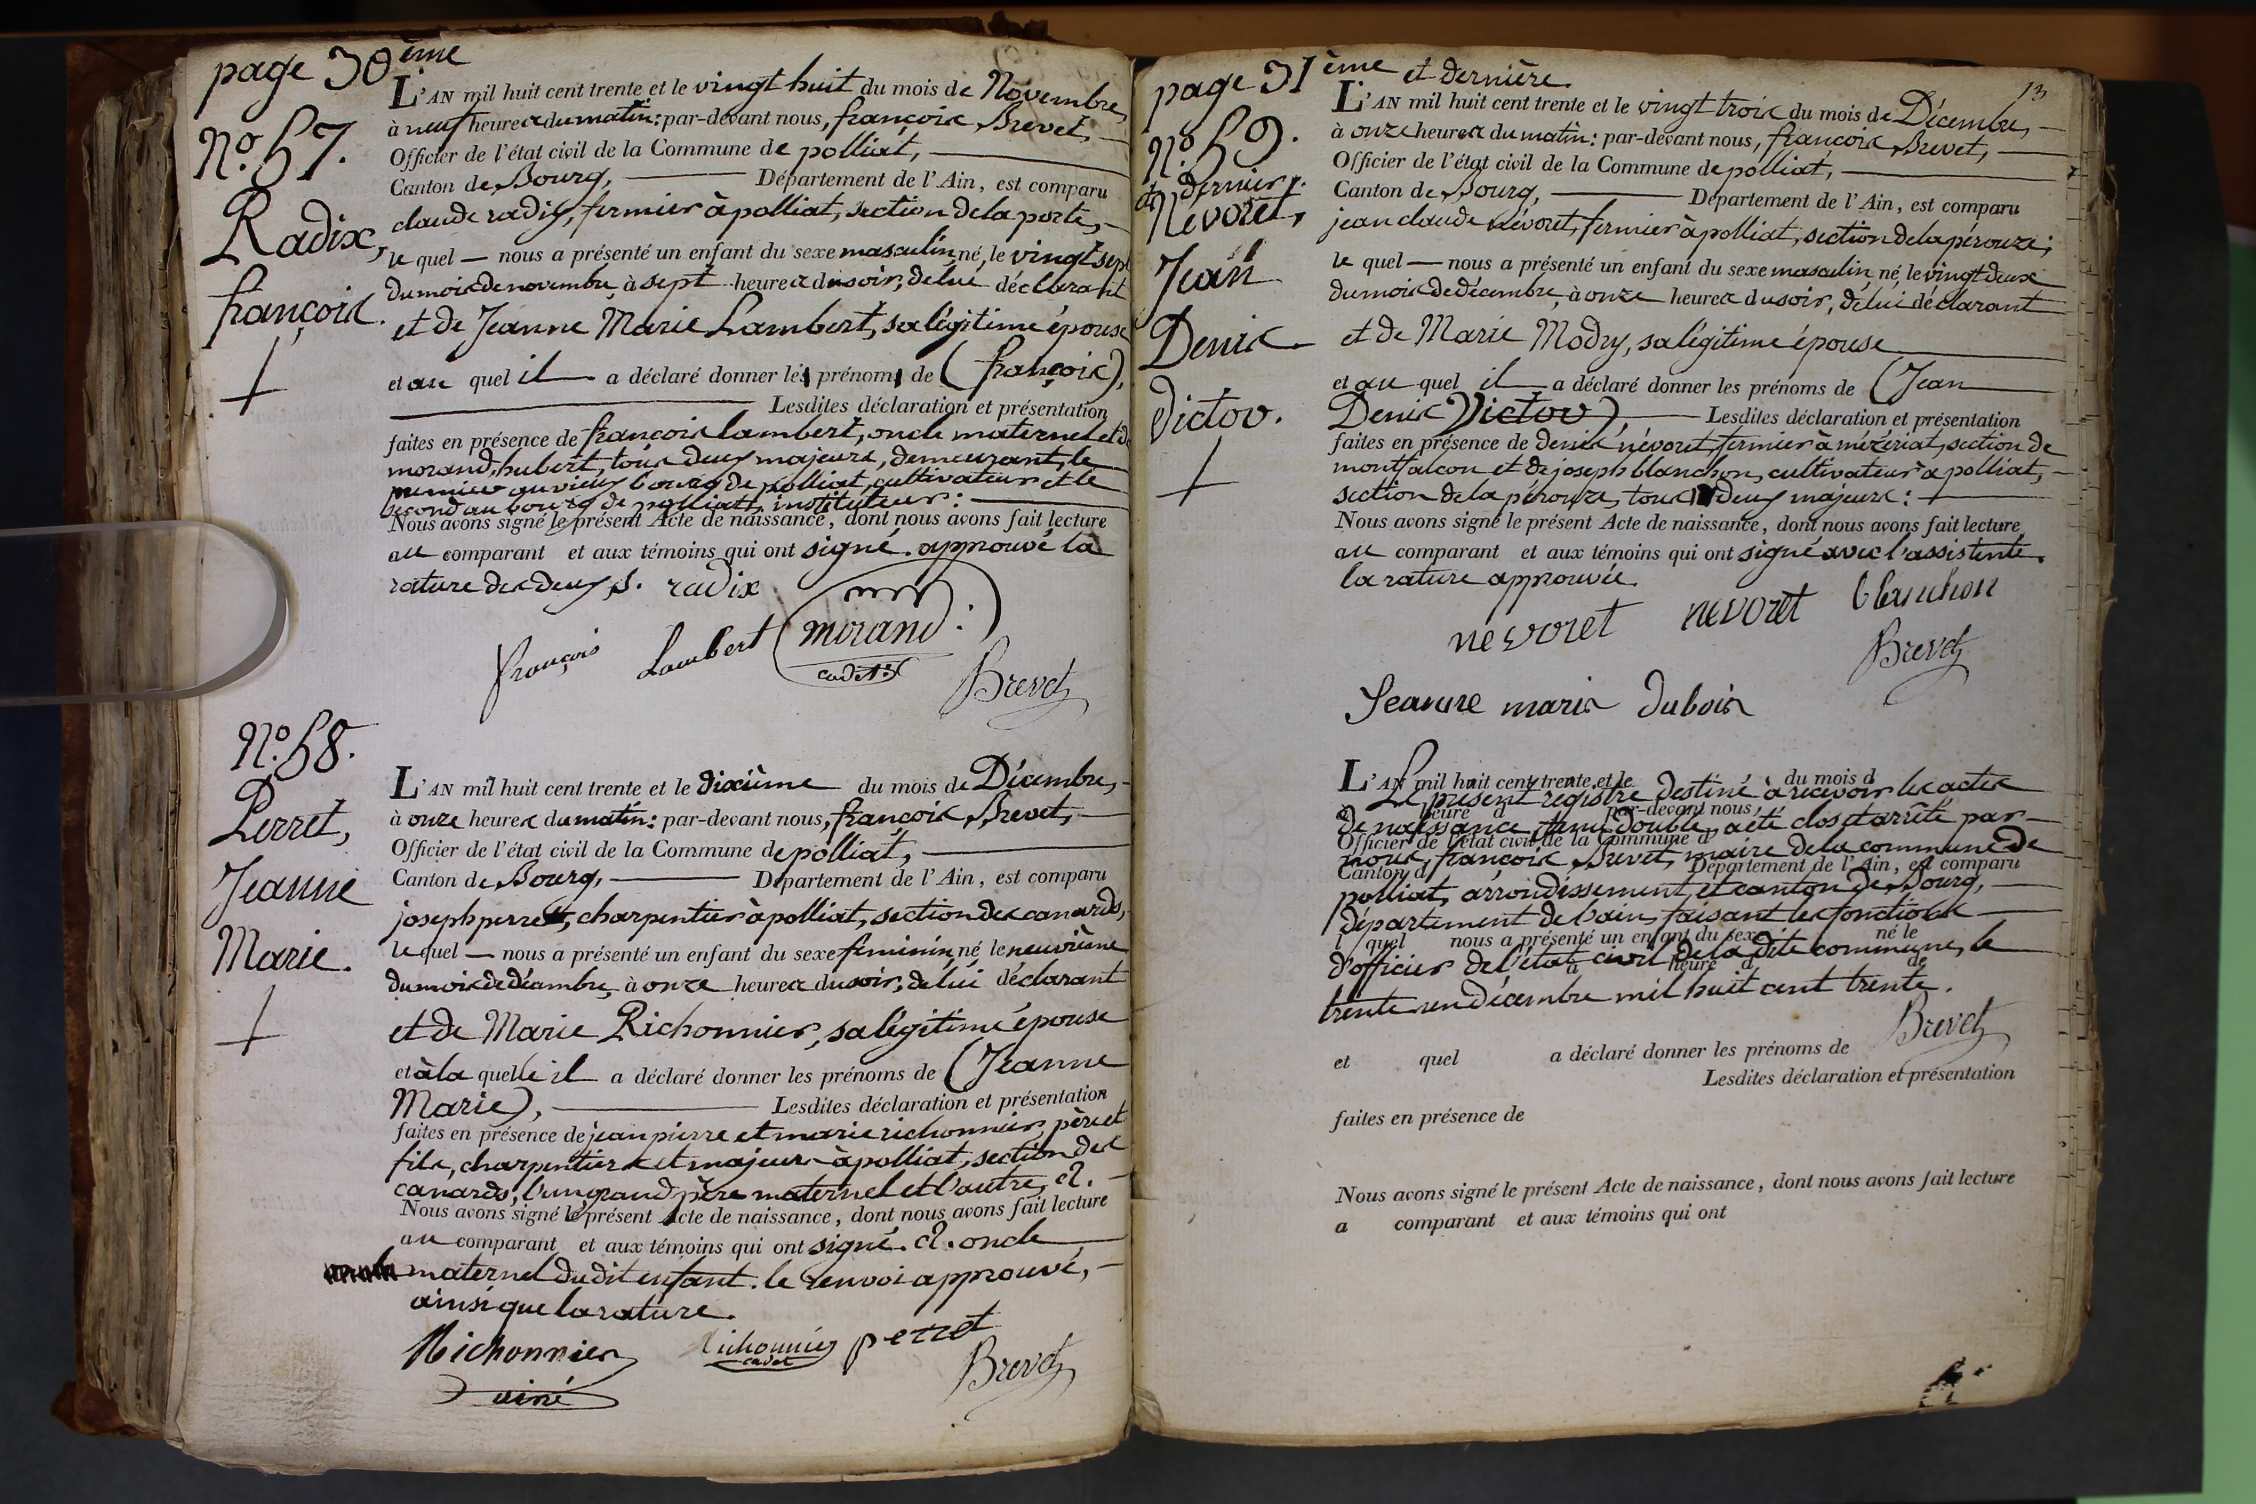 page 30ème
N.° 57.
Radix,
françois.
L'AN mil huit cent trente et le vingt huit du mois de Novembre,
à neuf heures du matin: par-devant nous, françois Brevet,
Officier de l'état civil de la Commune de polliat,
Canton de Bourg, Département de l'Ain, est comparu
claude radix, fermier à polliat, section de la porte,
le quel nous a présenté un enfant du sexe masculin, né, le vingt sept
du mois de novembre, à sept heures du soir, de lui déclarant
et de Jeanne Marie Lambert, sa légitime épouse
et au quel il a déclaré donner les prénoms de (françois),
Lesdites déclaration et présentation
faites en présence de françois lambert, oncle maternel et de
morand, hubert, tous deux majeurs, demeurant, le
premier au vieux bourg de polliat, cultivateur et le
second au bourg de polliat, instituteur:
Nous avons signé le présent Acte de naissance, dont nous avons fait lecture
au comparant et aux témoins qui ont signé. approuvé la
rature des deux s. radix
françois Lambert morand.
cadet
Brevet
N.° 58.
Perret,
Jeanne
Marie.
L'AN mil huit cent trente et le dixième du mois de Décembre,
à onze heures du matin: par-devant nous, françois Brevet,
Officier de l'état civil de la Commune de polliat,
Canton de Bourg, Département de l'Ain, est comparu
joseph perret, charpentier à polliat, section des canards,
le quel nous a présenté un enfant du sexe feminin, né, le neuvième
du mois de décembre, à onze heures du soir, de lui déclarant
et de Marie Richonnier, sa légitime épouse
et à la quelle il a déclaré donner les prénoms de (Jeanne
Marie), Lesdites déclaration et présentation
faites en présence de jean pierre et marie richonnier, père et
fils, charpentiers et majeurs à polliat, section des
canards, l'un grand père maternel et l'autre,
Nous avons signé le présent Acte de naissance, dont nous avons fait lecture
au comparant et aux témoins qui ont signé. oncle
maternel dudit enfant. le renvoi approuvé,
ainsi que la rature.
Richonnier Richonnier perret
ainé cadet Brevet
page 31ème et dernière
13
N.° 59.
et dernier.
Nevoret,
Jean
Denis
Victor.
L'AN mil huit cent trente et le vingt trois du mois de Décembre,
à onze heures du matin: par-devant nous, françois Brevet,
Officier de l'état civil de la Commune de polliat,
Canton de Bourg, Département de l'Ain, est comparu
jean claude névoret, fermier à polliat, section de la pérouze;
le quel nous a présenté un enfant du sexe masculin, né, le vingt deux
du mois de décembre, à onze heures du soir, de lui déclarant
et de Marie Modry, sa légitime épouse
et au quel il a déclaré donner les prénoms de (Jean
Denis Victor), Lesdites déclaration et présentation
faites en présence de denis névoret, fermier à mézériat, section de
montfalcon et de joseph blanchon, cultivateur à polliat,
section de la pérouze, tous deux majeurs:
Nous avons signé le présent Acte de naissance, dont nous avons fait lecture
au comparant et aux témoins qui ont signé avec l'assistente.
la rature approuvée.
nevoret nevoret blanchon
Brevet
Jeanne marie dubois
L'AN mil huit cent trente et le du mois d
Le présent registre destiné à recevoir les actes
heure d par-devant nous,
de naissance, tenu double, a été clos et arrêté par
Officier de l'état civil de la Commune d
nous, françois Brevet, maire de la commune de
Canton d Département de l'Ain, est comparu
polliat, arrondissement et canton de Bourg,
département de l'ain, faisant les fonctions
l quel nous a présenté un enfant du sexe né le
d'officier de l'état civil de la dite commune, le
à heure d de
trente un décembre mil huit cent trente.
Brevet
et quel a déclaré donner les prénoms de
Lesdites déclaration et présentation
faites en présence de
Nous avons signé le présent Acte de naissance, dont nous avons fait lecture
a comparant et aux témoins qui ont